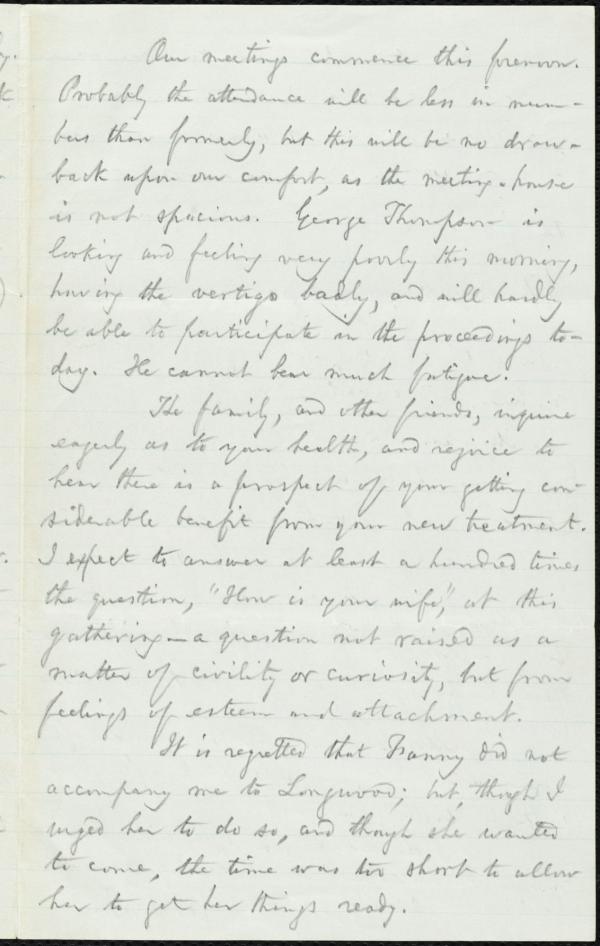 Our meetings commence this forenoon.
Probably the attendance will be less in num-
bers than formerly, but this will be no draw-
back upon our comfort, as the meeting-house
is not spacious. George Thompson is
looking and feeling very poorly this morning,
having the vertigo badly, and will hardly
be able to participate in the proceedings to-
day. He cannot bear much fatigue.
The family, and other friends, inquire
eagerly as to your health, and rejoice to
hear there is a prospect of your getting con-
siderable benefit from your new treatment.
I expect to answer at least a hundred times
the question, "How is your wife," at this
gathering—a question not raised as a
matter of civility or curiosity, but from
feelings of esteem and attachment.
It is regretted that Fanny did not
accompany me to Longwood; but, though I
urged her to do so, and though she wanted
to come, the time was too short to allow
her to get her things ready.